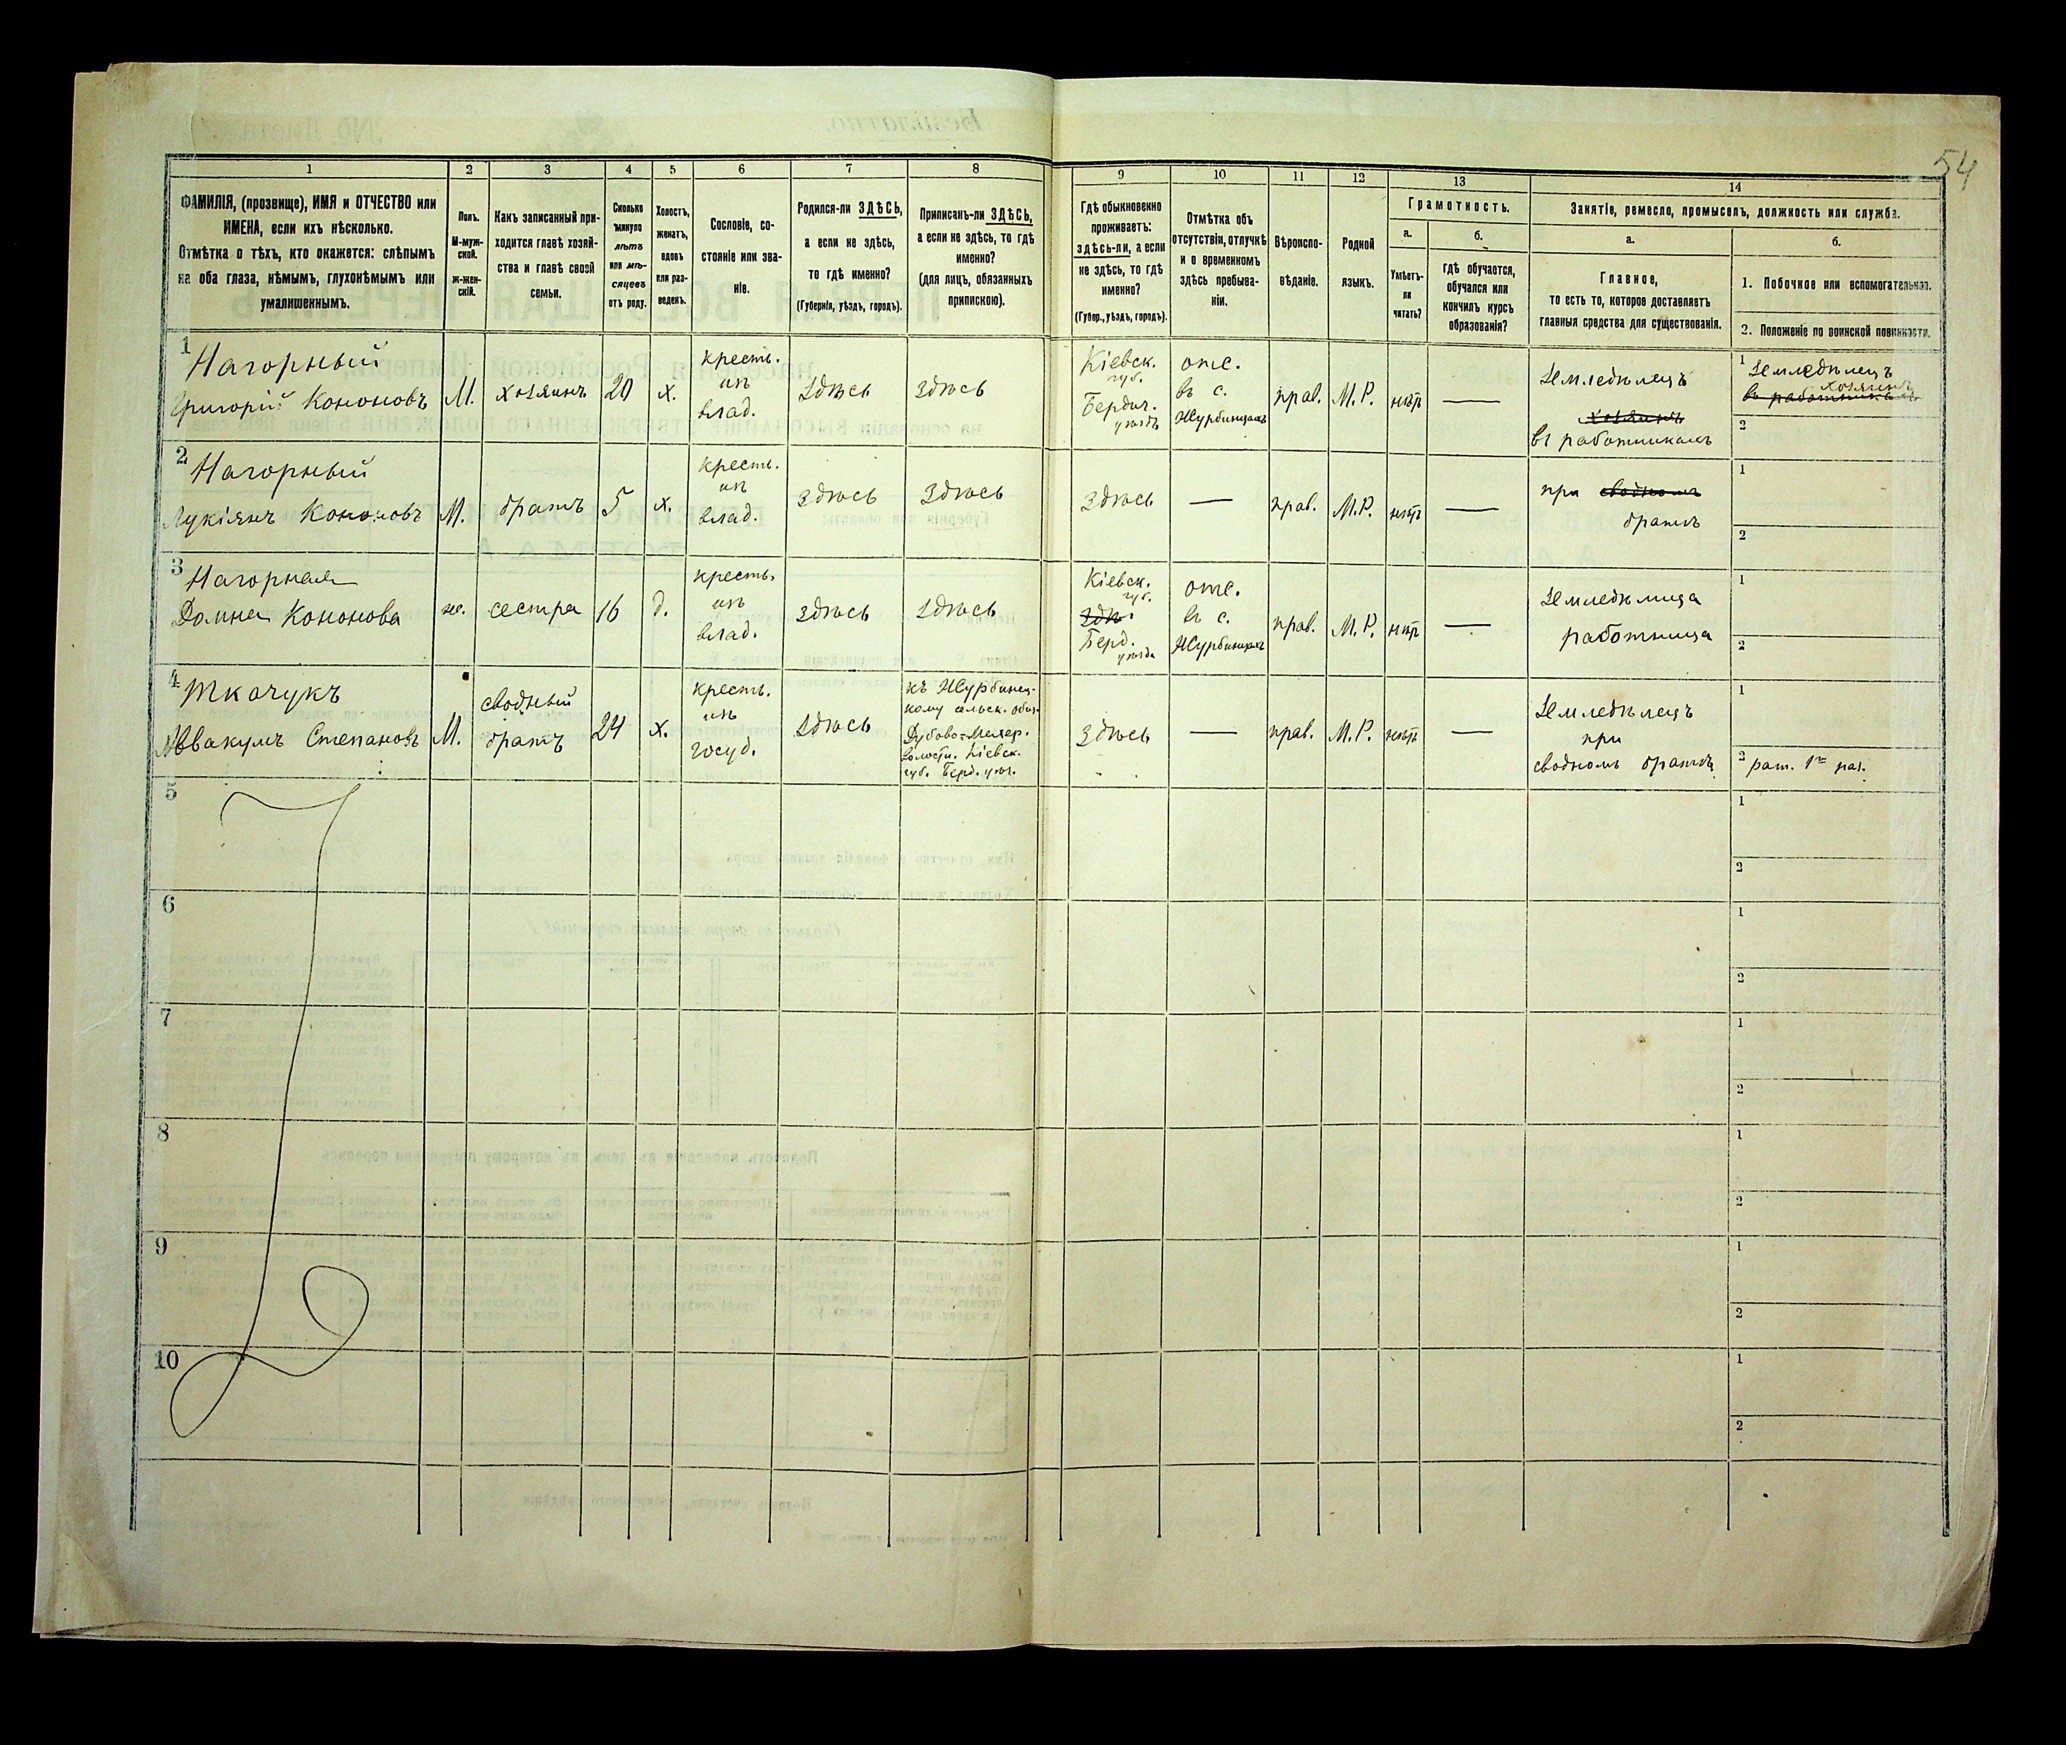 54
1
2
3
4
5
6
7
8
9
10
11
12
13
14
ФАМИЛІЯ, (прозвище), ИМЯ и ОТЧЕСТВО или
ИМЕНА, если ихъ нѣсколько.
Отмѣтка о тѣхъ, кто окажется: слѣпымъ
на оба глаза, нѣмымъ, глухонѣмымъ или
умалишеннымъ.
Полъ.
М-муж-
ской.
ж-жен-
скій.
Какъ записанный при-
ходится главѣ хозяй-
ства и главѣ своей
семьи.
Сколько
минуло
лѣтъ
или мѣ-
сяцевъ
отъ роду.
Холостъ,
женатъ,
вдовъ
или раз-
веденъ.
Сословіе, со-
стояніе или зва-
ніе.
Родился-ли ЗДѢСЬ,
а если не здѣсь,
то гдѣ именно?
(Губернія, уѣздъ, городъ).
Приписанъ-ли ЗДѢСЬ,
а если не здѣсь, то гдѣ
именно?
(для лицъ, обязанныхъ
припискою).
Гдѣ обыкновенно
проживаетъ:
здѣсь-ли, а если
не здѣсь, то гдѣ
именно?
(Губер., уѣздъ, городъ).
Отмѣтка объ
отсутствіи, отлучкѣ
и о временномъ
здѣсь пребыва-
ніи.
Вѣроиспо-
вѣданіе.
Родной
языкъ.
Грамотность.
а.
Умѣетъ-
ли
читать?
б.
Гдѣ обучается,
обучался или
кончилъ курсъ
образованія?
Занятіе, ремесло, промыселъ, должность или служба.
а.
Главное,
то есть то, которое доставляетъ
главныя средства для существованія.
б.
1. Побочное или вспомогательное.
2. Положеніе по воинской повинности.
1
Нагорный
Григорій Кононовъ
М.
хозяинъ
20
х.
кресть.
изъ
влад.
здѣсь
здѣсь
Кіевск.
губ.
Бердич.
уѣздъ
отс.
въ с.
Журбинцахъ
прав.
М.Р.
нѣтъ
—
Земледѣлецъ
хозяинъ
въ работникахъ
1 Земледѣлецъ
хозяинъ
въ работникахъ
2
2
Нагорный
Лукіянъ Кононовъ
М.
братъ
5
х.
кресть.
изъ
влад.
здѣсь
здѣсь
здѣсь
—
прав.
М.Р.
нѣтъ
—
при сводномъ
братѣ
1
2
3
Нагорная
Домна Кононова
ж.
сестра
16
д.
кресть.
изъ
влад.
здѣсь
здѣсь
Кіевск.
губ.
здѣ.
Берд.
уѣзда
отс.
въ с.
Журбинцахъ
прав.
М.Р.
нѣтъ
—
Земледѣлица
работница
1
2
4
Ткачукъ
Аввакумъ Степановъ
М.
сводный
братъ
24
х.
кресть.
изъ
госуд.
здѣсь
къ Журбинец-
кому сельск. общ.
Дубово-Махар.
волости. Кіевск.
губ. Берд. уѣз.
здѣсь
—
прав.
М.Р.
нѣтъ
—
Земледѣлецъ
при
сводномъ братѣ
1
2 рат. 1го раз.
5
1
2
6
1
2
7
1
2
8
1
2
9
1
2
10
1
2